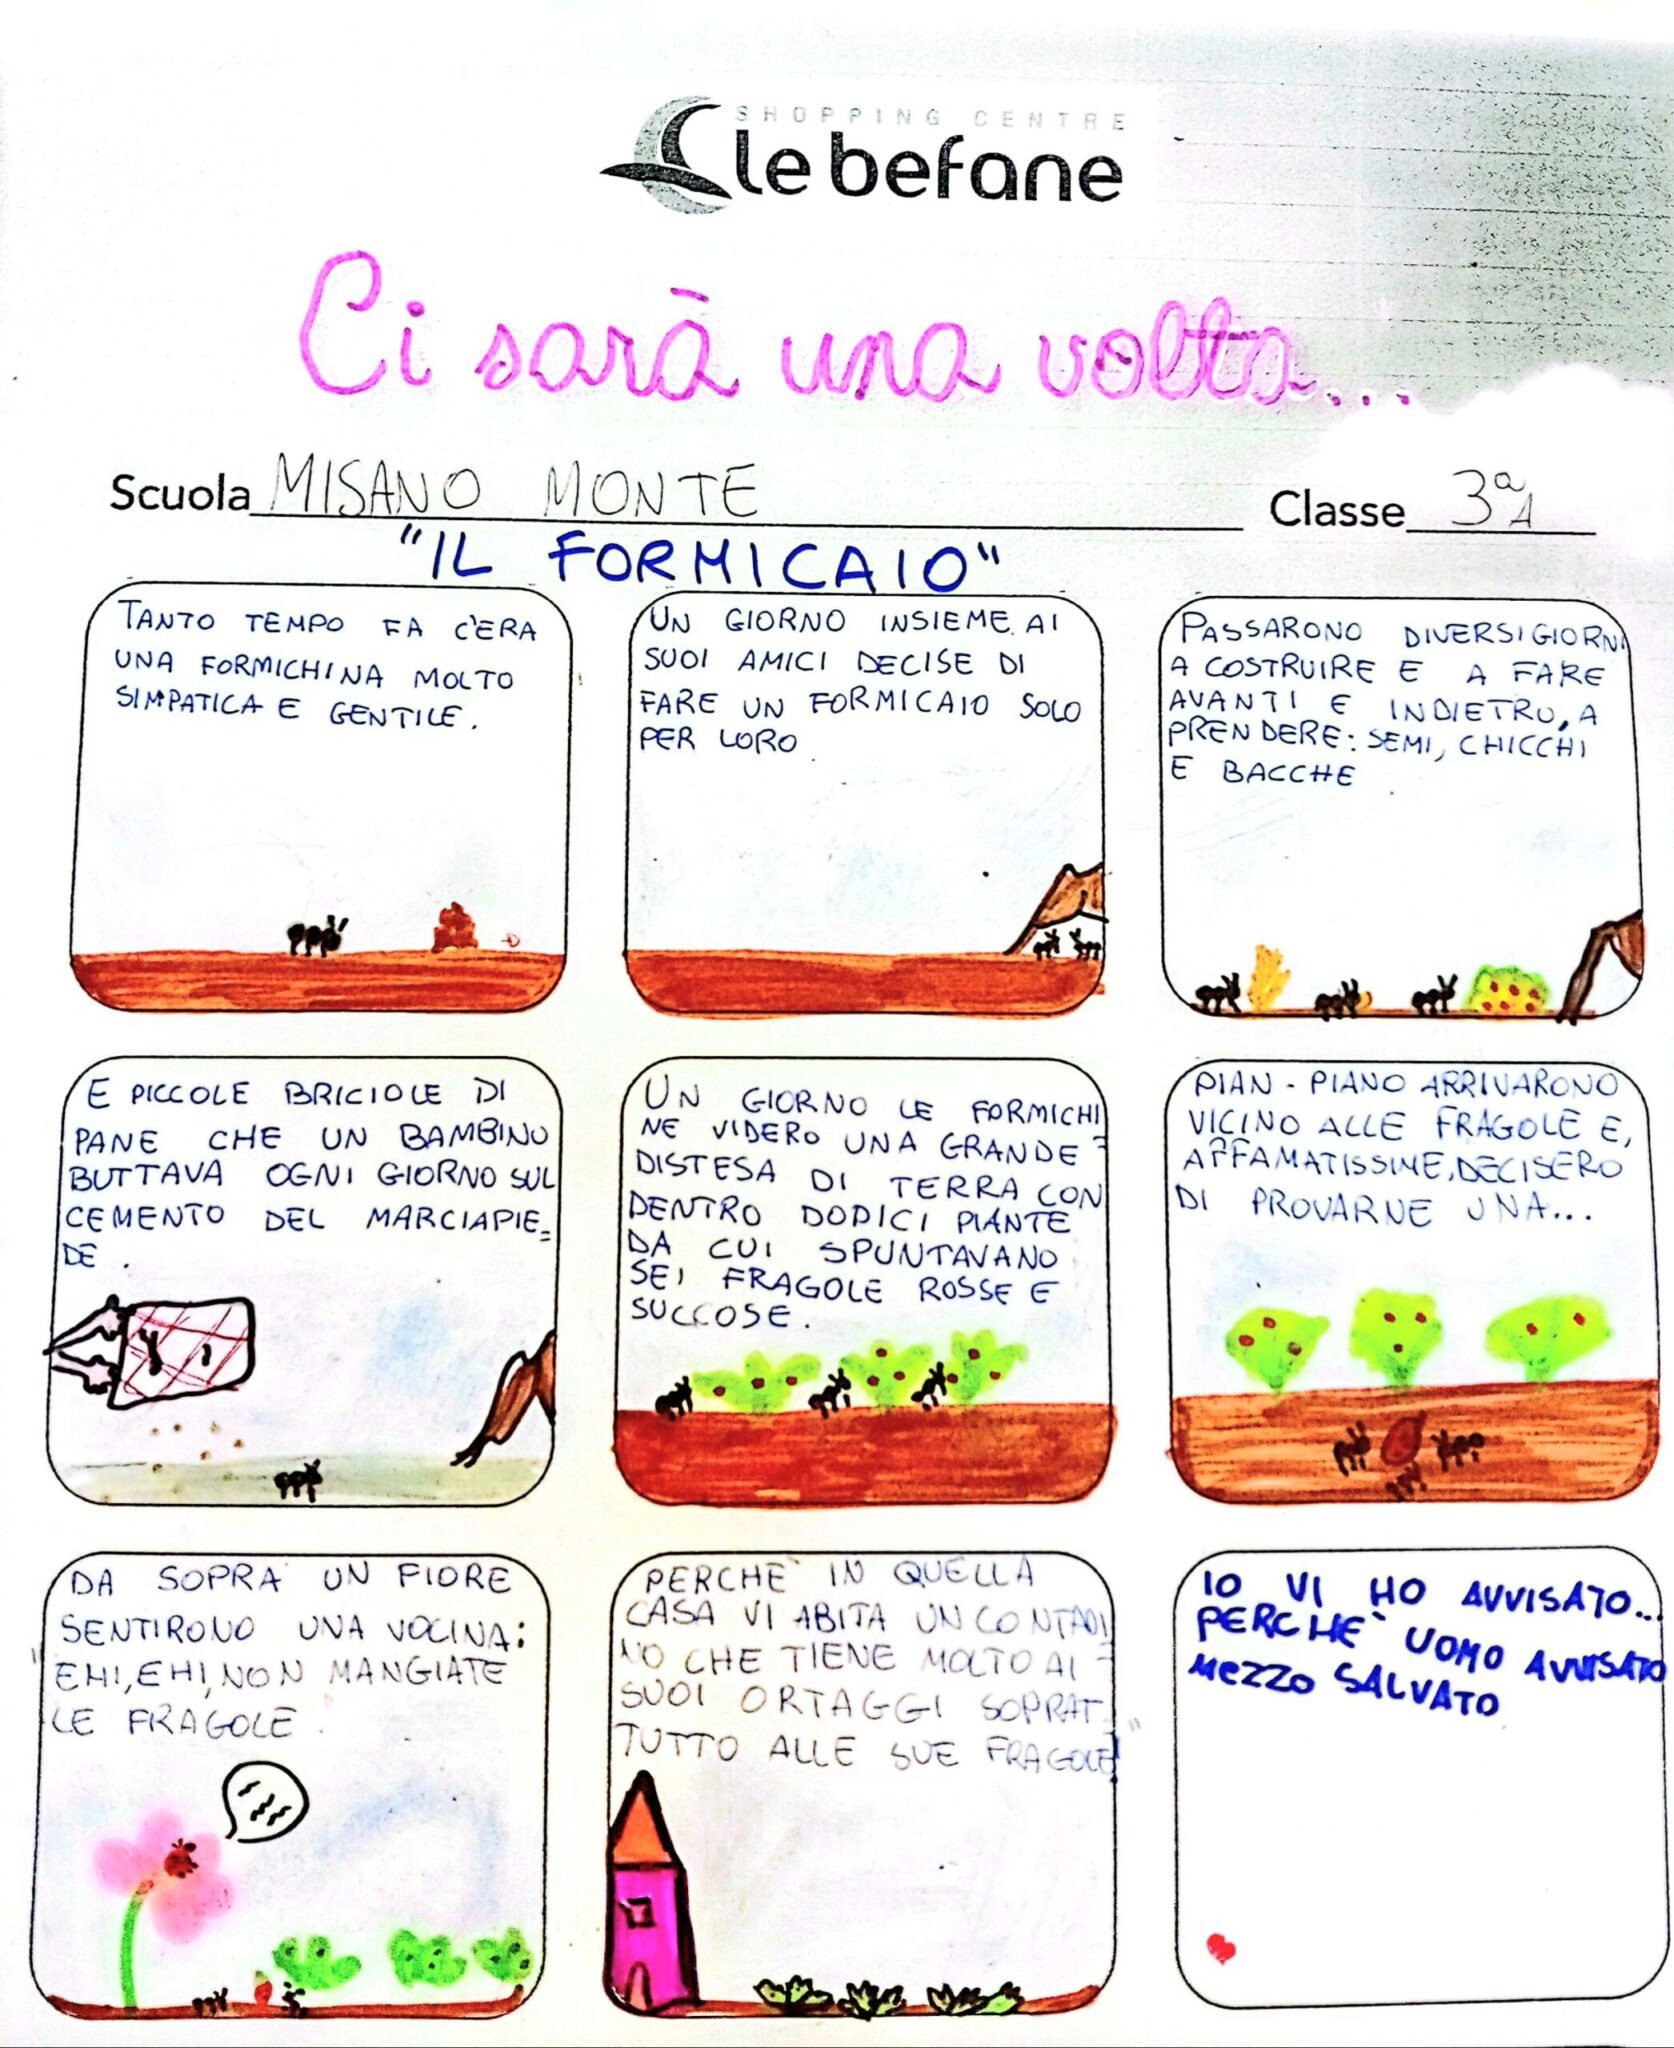 SHOPPING CENTRE
le befane
Ci sarà una volta...
Scuola MISANO MONTE Classe 3ª A
"IL FORMICAIO"
TANTO TEMPO FA C'ERA
UNA FORMICHINA MOLTO
SIMPATICA E GENTILE.
UN GIORNO INSIEME AI
SUOI AMICI DECISE DI
FARE UN FORMICAIO SOLO
PER LORO
PASSARONO DIVERSI GIORNI
A COSTRUIRE E A FARE
AVANTI E INDIETRO, A
PRENDERE: SEMI, CHICCHI
E BACCHE
E PICCOLE BRICIOLE DI
PANE CHE UN BAMBINO
BUTTAVA OGNI GIORNO SUL
CEMENTO DEL MARCIAPIE=
DE.
UN GIORNO LE FORMICHI
NE VIDERO UNA GRANDE
DISTESA DI TERRA CON
DENTRO DODICI PIANTE
DA CUI SPUNTAVANO
SEI FRAGOLE ROSSE E
SUCCOSE.
PIAN-PIANO ARRIVARONO
VICINO ALLE FRAGOLE E,
AFFAMATISSIME, DECISERO
DI PROVARNE UNA...
DA SOPRA UN FIORE
SENTIRONO UNA VOCINA:
"EHI, EHI, NON MANGIATE
LE FRAGOLE.
PERCHÈ IN QUELLA
CASA VI ABITA UN CONTADI
NO CHE TIENE MOLTO AI
SUOI ORTAGGI SOPRAT-
TUTTO ALLE SUE FRAGOLE!"
IO VI HO AVVISATO...
PERCHÈ UOMO AVVISATO
MEZZO SALVATO